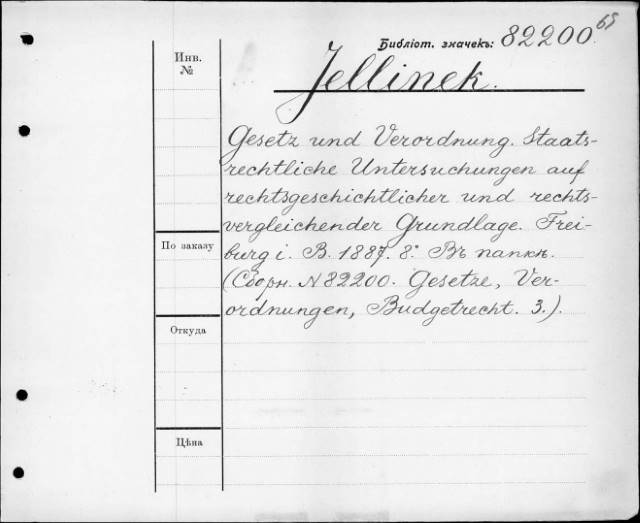 65
Библіот. значекъ: 82200.
Инв.
№
Jellinek.
Gesetz und Verordnung. Staats-
rechtliche Untersuchungen auf
rechtsgeschichtlicher und rechts-
vergleichender Grundlage. Frei-
По заказу
burg i. B. 1887. 8.° Въ папкѣ.
(Сборн. N 82200. Gesetze, Ver-
ordnungen, Budgetrecht. 3.).
Откуда
Цѣна